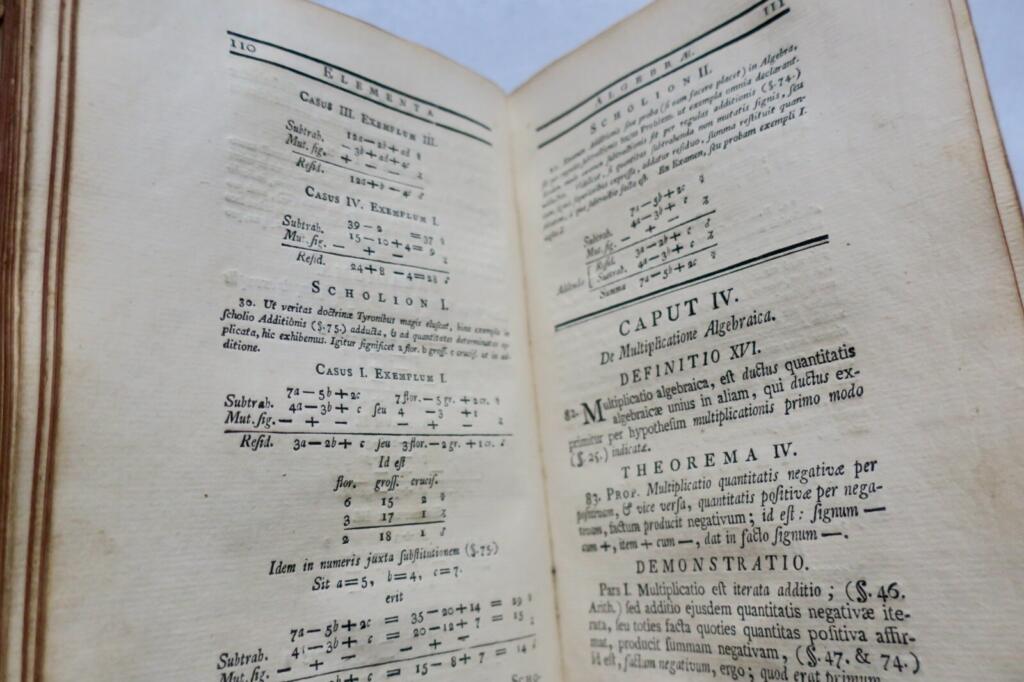 110
ELEMENTA
CASUS III. EXEMPLUM III.
12c—2b+ad
Subtrah. — 3b+ad+4c
Mut. sig. + — —
Resid. 12c+b — 4c
CASUS IV. EXEMPLUM I.
39—2 =37
Subtrah. 15—10+4= 9
Mut. sig. — + —
Resid. 24+8 —4=28
SCHOLION I.
30. Ut veritas doctrinæ Tyronibus magis eluſcat, hinc exempla in
ſcholio Additionis (§.75.) adducta, & ad quantitates determinatas
plicata, hic exhibemus. Igitur ſignificet a flor. b groſſ. c crucif. ut in ad-
ditione.
CASUS I. EXEMPLUM I.
7a—5b+2c 7flor.—5gr. +2cr.
Subtrah. 4a—3b+ c ſeu 4 —3 +1
Mut. ſig.— + — — + —
Reſid. 3a—2b+ c ſeu 3flor.—2gr. +1cr.
Id eſt
flor. groſſ. crucif.
6 15 2
3 17 1
2 18 1
Idem in numeris juxta ſubſtitutionem (§.75)
Sit a=5, b=4, c=7.
erit
7a—5b+2c = 35—20+14 = 29
Subtrah. 4a—3b+ c = 20—12+7 = 15
Mut. ſig. — + — — + —
= 15—8+7 = 14
SCHO-
ALGEBRÆ. 111
SCHOLION II.
proba (ſi eam facere placet) in Algebra,
Problem. ut exempla omnia declarant.
fit per regulas additionis (§.74.)
ſubtrahenda non mutatis ſignis, ſeu
addatur reſiduo, ſumma reſtituit quan-
facta eſt. En Examen, ſeu probam exempli I.
7a—5b+2c
Subtrah. 4a—3b+ c
Mut. ſig.— + —
Addenda { Reſid. 3a—2b+ c
Subtrah. 4a—3b+ c
Summa 7a—5b+2c
CAPUT IV.
De Multiplicatione Algebraica.
DEFINITIO XVI.
82. Multiplicatio algebraica, eſt ductus quantitatis
algebraicæ unius in aliam, qui ductus ex-
primitur per hypotheſim multiplicationis primo modo
(§.25.) indicatæ.
THEOREMA IV.
83. PROP. Multiplicatio quantitatis negativæ per
poſitivam, & vice verſa, quantitatis poſitivæ per nega-
tivam, factum producit negativum; id eſt: ſignum —
cum +, item + cum —, dat in facto ſignum —.
DEMONSTRATIO.
Pars I. Multiplicatio eſt iterata additio; (§. 46.
Arith.) ſed additio ejuſdem quantitatis negativæ ite-
rata, ſeu toties facta quoties quantitas poſitiva affir-
mat, producit ſummam negativam, (§. 47. & 74.)
Id eſt, factum negativum, ergo; quod erat primum.